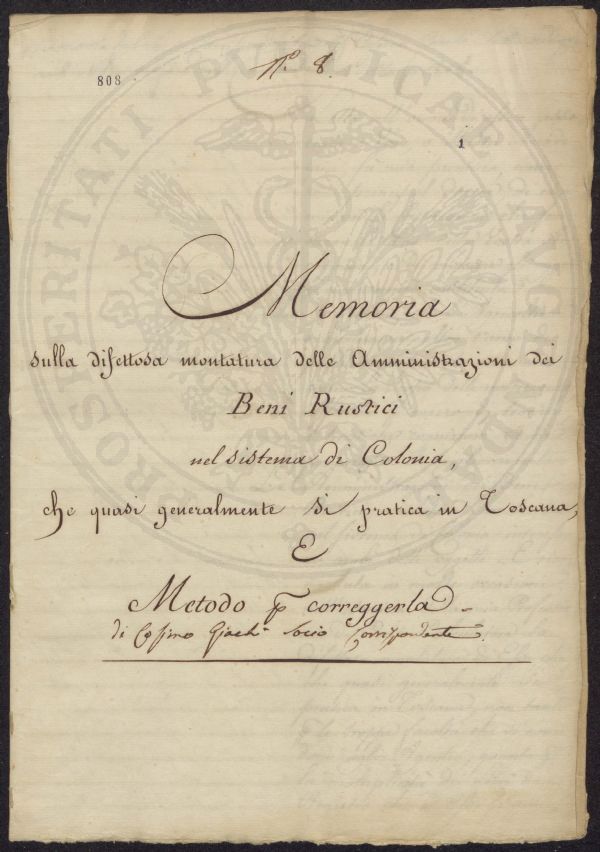 N. 8.
808
1
PROSPERITATI PUBLICAE AUGENDAE
Memoria
sulla difettosa montatura delle Amministrazioni dei
Beni Rustici
nel sistema di Colonia,
che quasi generalmente si pratica in Toscana,
E
Metodo p correggerla
di Cosimo socio Corrispondente